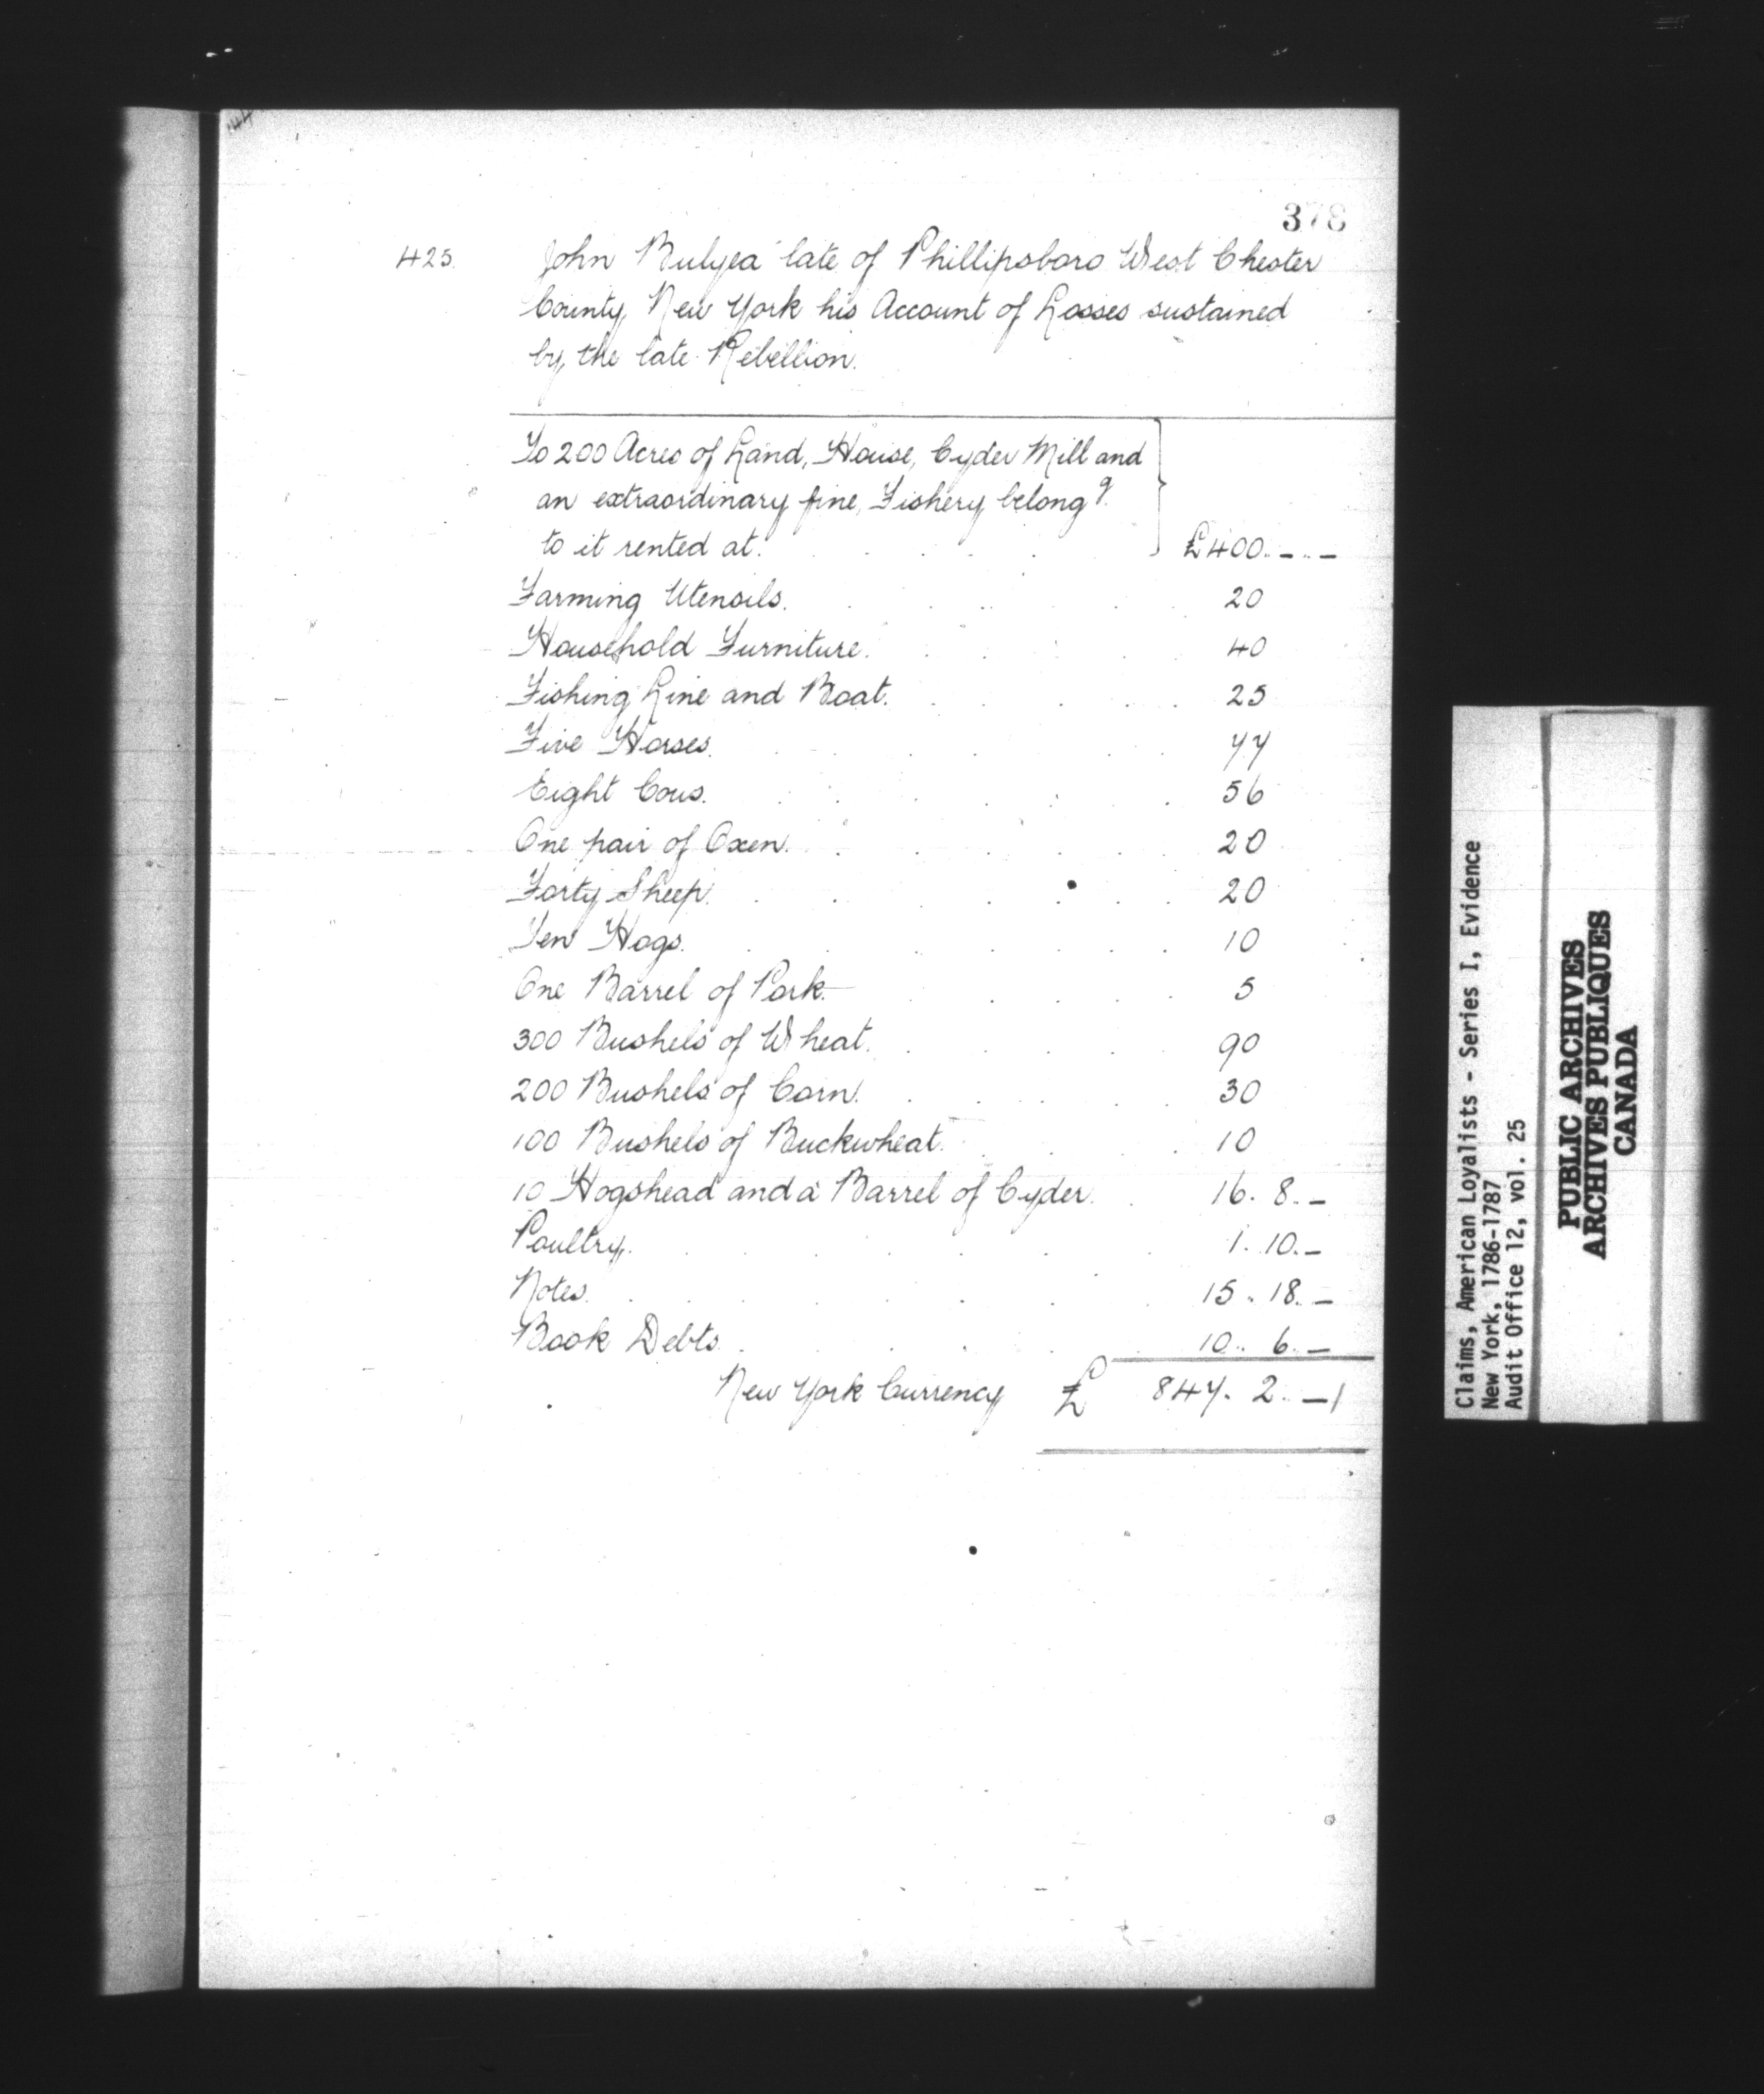 378
425. John Bulyea late of Phillipsboro West Chester
County New York his Account of Losses sustained
by the late Rebellion.
To 200 Acres of Land, House, Cyder Mill and
an extraordinary fine Fishery belong g.
to it rented at. £400..-..-
Farming Utensils. 20
Household Furniture. 40
Fishing Line and Boat. 25
Five Horses. 77
Eight Cows. 56
One pair of Oxen. 20
Forty Sheep. 20
Ten Hogs. 10
One Barrel of Pork. 5
300 Bushels of Wheat. 90
200 Bushels of Corn. 30
100 Bushels of Buckwheat. 10
10 Hogshead and a Barrel of Cyder. 16. 8. -
Poultry. 1. 10. -
Notes. 15. 18. -
Book Debts. 10.. 6. -
New York Currency £ 847. 2.. -
Claims, American Loyalists - Series I, Evidence
New York, 1786-1787
Audit Office 12, vol. 25
PUBLIC ARCHIVES
ARCHIVES PUBLIQUES
CANADA